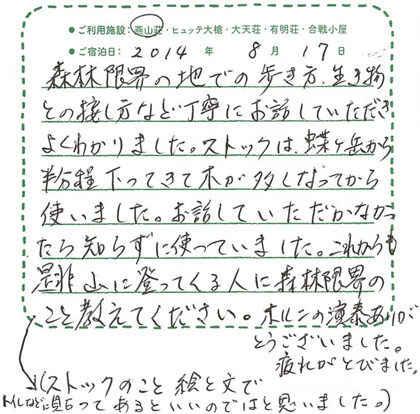 ●ご利用施設：燕山荘・ヒュッテ大槍・大天荘・有明荘・合戦小屋
●ご宿泊日：2014年 8月 17日
森林限界の地での歩き方、生き物
との接し方など丁寧にお話していただき
よくわかりました。ストックは、蝶ヶ岳から
半分程下ってきて木が多くなってから
使いました。お話していただかなかっ
たら知らずに使っていました。これからも
是非山に登ってくる人に森林限界の
こと教えてください。ホルンの演奏ありが
とうございました。
疲れがとびました。
(ストックのこと 絵と文で
トイレなどに貼ってあるといいのではと思いました。)